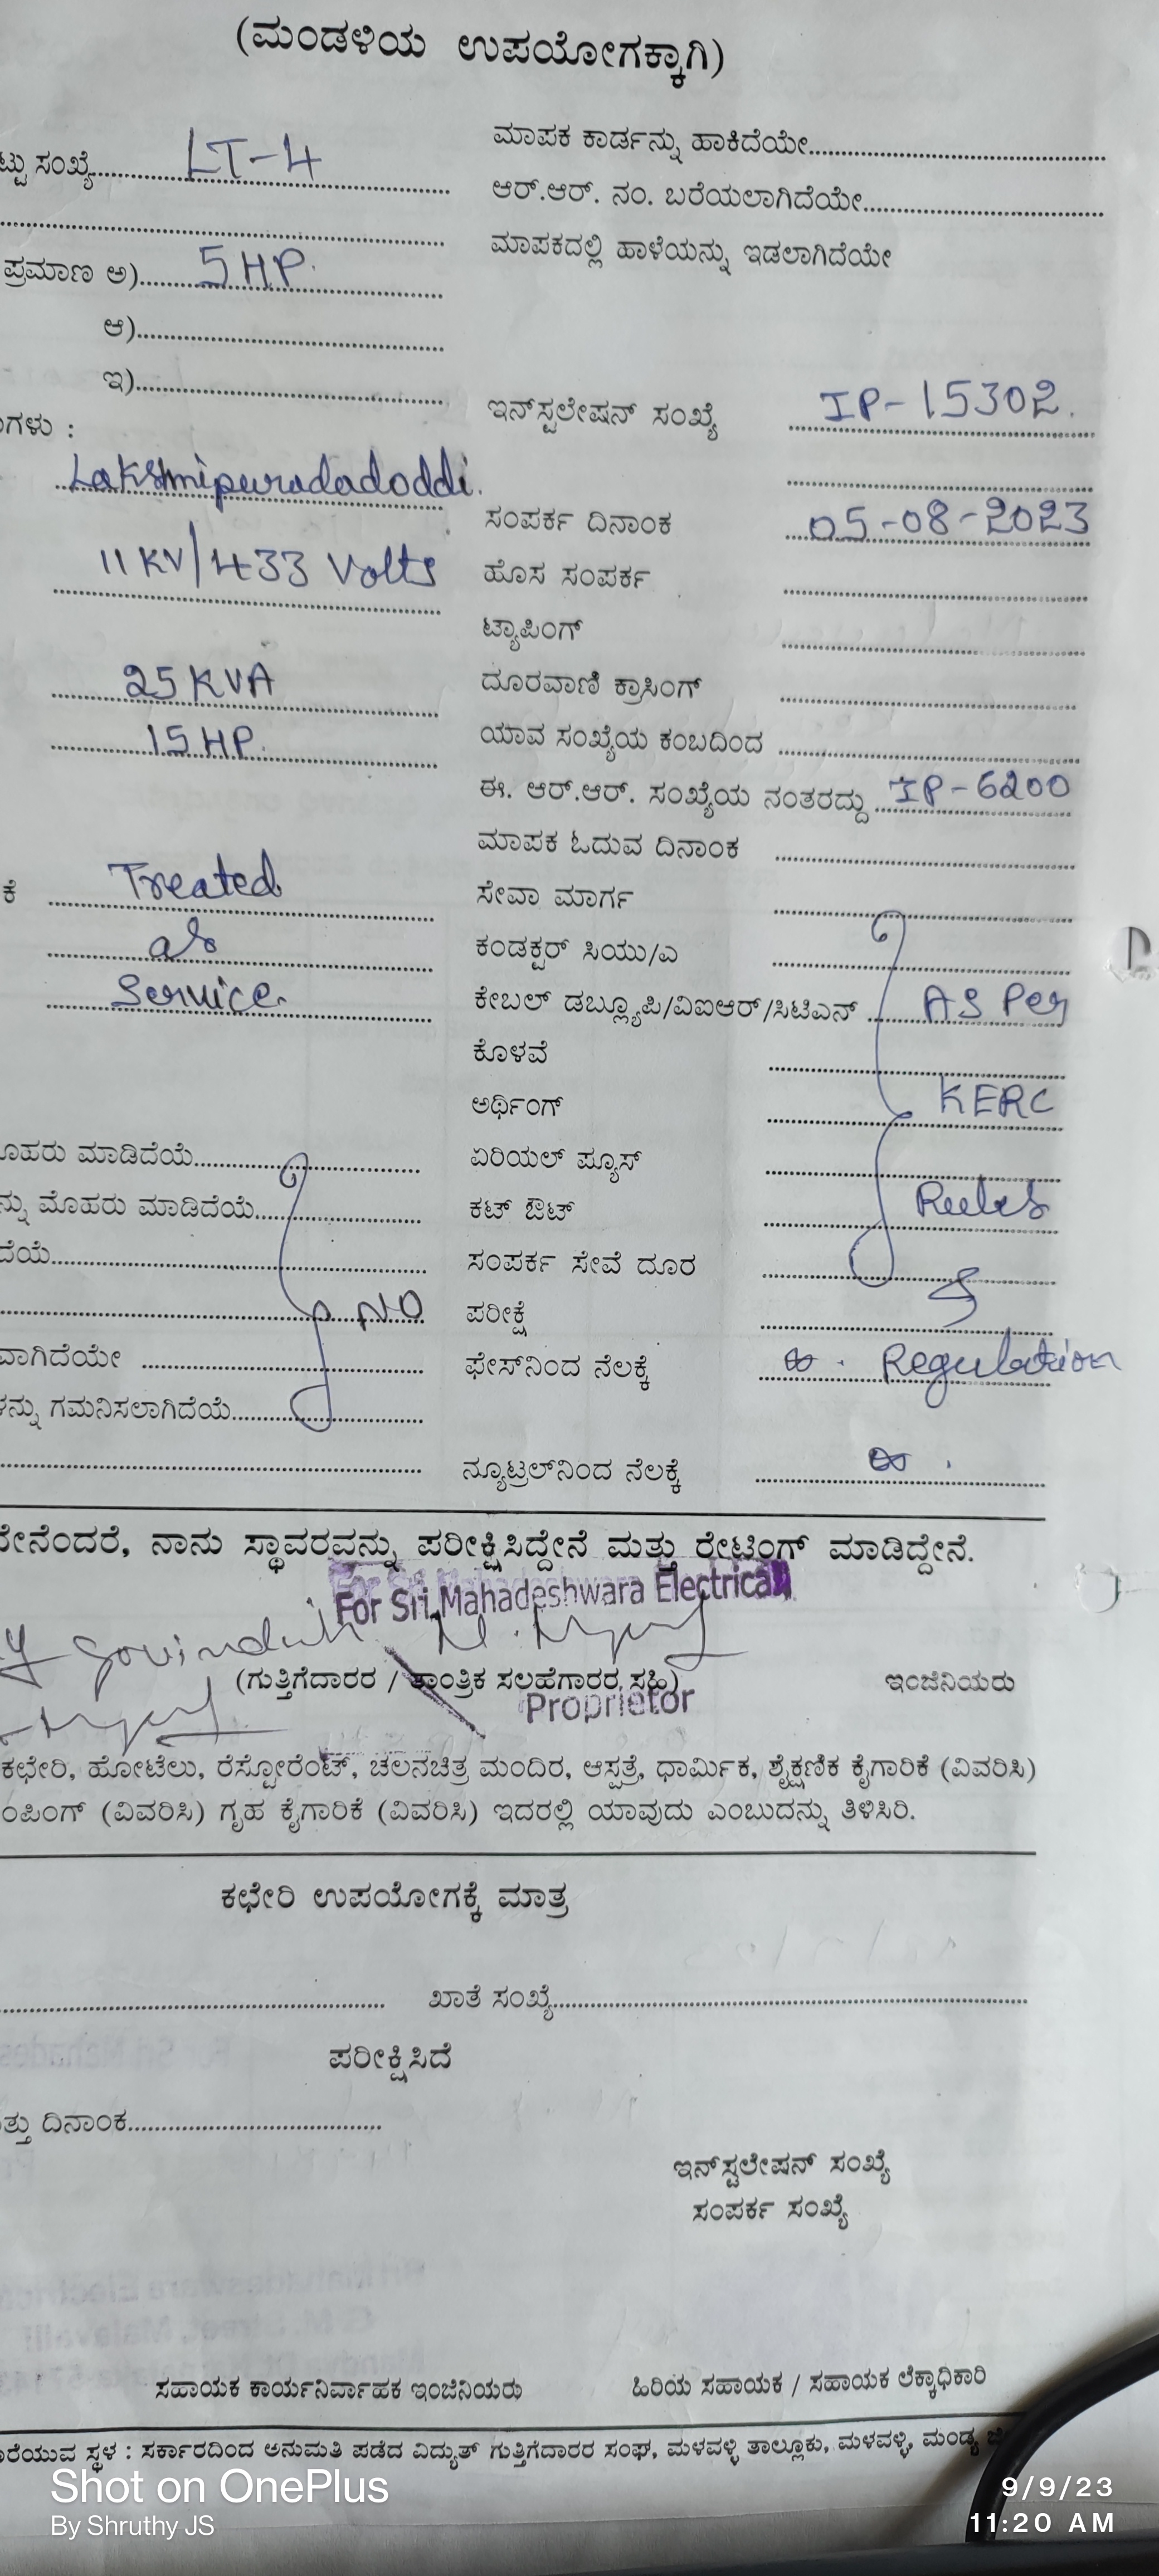 (ಮಂಡಳಿಯ ಉಪಯೋಗಕ್ಕಾಗಿ)
ಟ್ಟು ಸಂಖ್ಯೆ LT-4
ಪ್ರಮಾಣ ಅ) 5 HP.
ಆ)
ಇ)
ಗಳು :
Lakshmipuradadoddi.
11 KV/433 Volts
25 KVA
15 HP.
ಕೆ Treated
as
Service.
ೊಹರು ಮಾಡಿದೆಯೆ
ನ್ನು ಮೊಹರು ಮಾಡಿದೆಯೆ
ದೆಯೆ
NO
ವಾಗಿದೆಯೇ
ಳನ್ನು ಗಮನಿಸಲಾಗಿದೆಯೆ
ಮಾಪಕ ಕಾರ್ಡನ್ನು ಹಾಕಿದೆಯೇ
ಆರ್.ಆರ್. ನಂ. ಬರೆಯಲಾಗಿದೆಯೇ
ಮಾಪಕದಲ್ಲಿ ಹಾಳೆಯನ್ನು ಇಡಲಾಗಿದೆಯೇ
ಇನ್‌ಸ್ಟಲೇಷನ್ ಸಂಖ್ಯೆ IP-15302.
ಸಂಪರ್ಕ ದಿನಾಂಕ 05-08-2023
ಹೊಸ ಸಂಪರ್ಕ
ಟ್ಯಾಪಿಂಗ್
ದೂರವಾಣಿ ಕ್ರಾಸಿಂಗ್
ಯಾವ ಸಂಖ್ಯೆಯ ಕಂಬದಿಂದ
ಈ. ಆರ್.ಆರ್. ಸಂಖ್ಯೆಯ ನಂತರದ್ದು IP-6200
ಮಾಪಕ ಓದುವ ದಿನಾಂಕ
ಸೇವಾ ಮಾರ್ಗ
ಕಂಡಕ್ಟರ್ ಸಿಯು/ಎ
ಕೇಬಲ್ ಡಬ್ಲ್ಯೂಪಿ/ವಿಐಆರ್/ಸಿಟಿಎನ್ AS Per
ಕೊಳವೆ
ಅರ್ಥಿಂಗ್ KERC
ಏರಿಯಲ್ ಪ್ಯೂಸ್
ಕಟ್ ಔಟ್ Rules
ಸಂಪರ್ಕ ಸೇವೆ ದೂರ
ಪರೀಕ್ಷೆ &
ಫೇಸ್‌ನಿಂದ ನೆಲಕ್ಕೆ Regulation
ನ್ಯೂಟ್ರಲ್‌ನಿಂದ ನೆಲಕ್ಕೆ
ನೇನೆಂದರೆ, ನಾನು ಸ್ಥಾವರವನ್ನು ಪರೀಕ್ಷಿಸಿದ್ದೇನೆ ಮತ್ತು ರೇಟಿಂಗ್ ಮಾಡಿದ್ದೇನೆ.
For Sri Mahadeshwara Electrical
(ಗುತ್ತಿಗೆದಾರರ / ತಾಂತ್ರಿಕ ಸಲಹೆಗಾರರ ಸಹಿ) ಇಂಜಿನಿಯರು
Proprietor
ಕಛೇರಿ, ಹೋಟೆಲು, ರೆಸ್ಟೋರೆಂಟ್, ಚಲನಚಿತ್ರ ಮಂದಿರ, ಆಸ್ಪತ್ರೆ, ಧಾರ್ಮಿಕ, ಶೈಕ್ಷಣಿಕ ಕೈಗಾರಿಕೆ (ವಿವರಿಸಿ)
ಂಪಿಂಗ್ (ವಿವರಿಸಿ) ಗೃಹ ಕೈಗಾರಿಕೆ (ವಿವರಿಸಿ) ಇದರಲ್ಲಿ ಯಾವುದು ಎಂಬುದನ್ನು ತಿಳಿಸಿರಿ.
ಕಛೇರಿ ಉಪಯೋಗಕ್ಕೆ ಮಾತ್ರ
ಖಾತೆ ಸಂಖ್ಯೆ
ಪರೀಕ್ಷಿಸಿದೆ
ತ್ತು ದಿನಾಂಕ
ಇನ್‌ಸ್ಟಲೇಷನ್ ಸಂಖ್ಯೆ
ಸಂಪರ್ಕ ಸಂಖ್ಯೆ
ಸಹಾಯಕ ಕಾರ್ಯನಿರ್ವಾಹಕ ಇಂಜಿನಿಯರು ಹಿರಿಯ ಸಹಾಯಕ / ಸಹಾಯಕ ಲೆಕ್ಕಾಧಿಕಾರಿ
ರೆಯುವ ಸ್ಥಳ : ಸರ್ಕಾರದಿಂದ ಅನುಮತಿ ಪಡೆದ ವಿದ್ಯುತ್ ಗುತ್ತಿಗೆದಾರರ ಸಂಘ, ಮಳವಳ್ಳಿ ತಾಲ್ಲೂಕು, ಮಳವಳ್ಳಿ, ಮಂಡ್ಯ
Shot on OnePlus
By Shruthy JS
9/9/23
11:20 AM